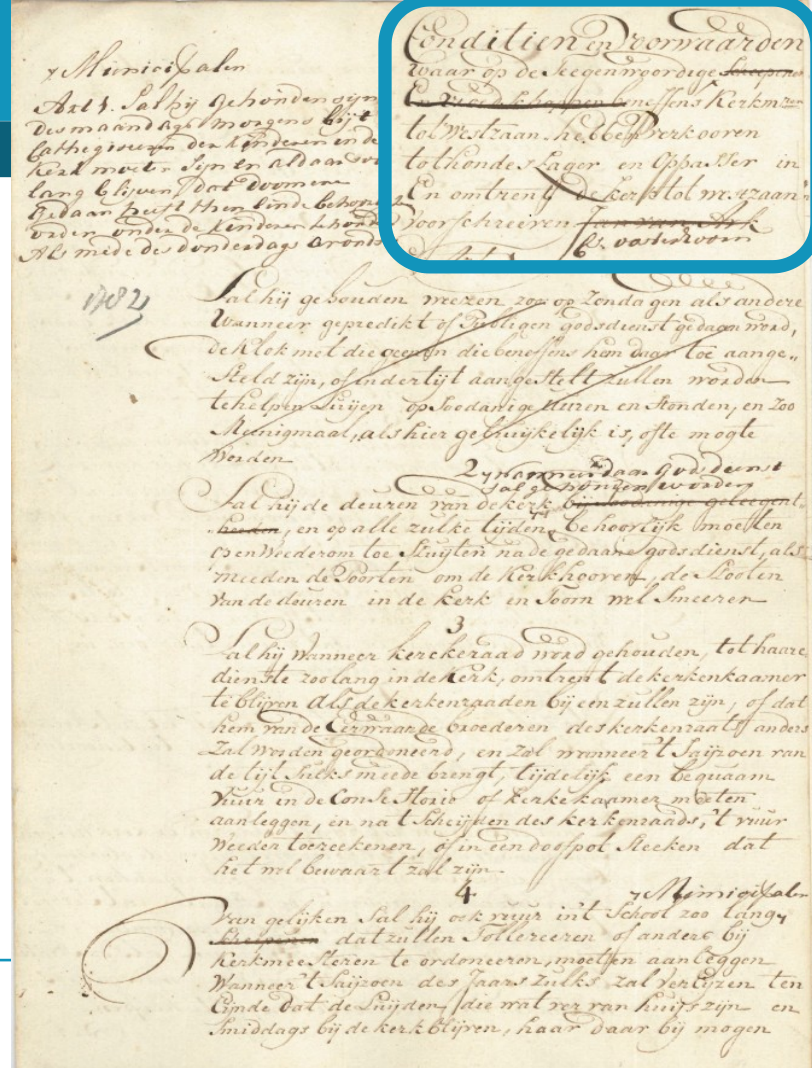 Conditien en Voorwaarden
waar op de Teegenwoordige Scheepenen
En Vroedschappen beneffens Kerkmrn
tot Westzaan hebben Verkooren
tot hondeslager en Oppasser in
En omtrent de kerk tot westzaan
voorschreeven Jan van Ark
oosterhoorn
7 Municipalen
Art 1. Sal hij gehouden sijn
des maandags morgens bij t
Cathegiseren der kinderen in de
kerk moeten sijn en aldaar soo
lang blijven dat doomene
gedaan heeft
orden onder de kinderen te houden
Als mede des donderdags avonds
1782
Sal hij gehouden weezen zoo op Zondagen als andere
Wanneer gepredikt of Publigen godsdienst gedaan word,
de klok met die geenen die beneffens hem daar toe aange„
steld zijn, of indertijt aangestelt zullen worden
te helpen Luijen op soodanige Uuren en stonden, en zoo
Meenigmaal, als hier gebruijkelijk is, ofte mogte
worden
2 wanneer daar godsdienst
sal gehouden worden
Sal hij de deuren van de kerk bij soodanige geleegent„
heeden, en op alle zulke tijden behoorlijk moeten
openWederom toe sluyten na de gedaane godsdienst, als
meeden de Poorten om de Kerkhooven, de slooten
van de deuren in de kerk en Toorn wel smeeren
3
Sal hij wanneer kerckeraad word gehouden, tot haare
dienste zoo lang in de Kerk, omtrent de kerkenkaamer
te blijven als de kerkenraaden bij een zullen zijn, of dat
hem van de Eerwaarde broederen des kerkenraats anders
Zal worden geordoneerd, en Zal wanneer 't Saijzoen van
de tijt sulks meede brengt, tijdelijk een bequaam
vuur in de Consistorio of kerkekaamer moeten
aanleggen, en na t scheijden des kerkenraads, 't vuur
weeder toereekenen, of in een doofpot steeken dat
het wel bewaart zal zijn.
4
7 Municipalen
Van gelijken Sal hij ook vuur in't School zoo lang
Scheepenen dat zullen Tollereeren of anders bij
kerkmeesteren te ordoneeren, moeten aanleggen
Wanneer 't Saijzoen des Jaars zulks zal vereijzen ten
Eijnde dat de Luijden, die wat ver van huijs zijn en
smiddags bij de kerk blijven, haar daar bij mogen